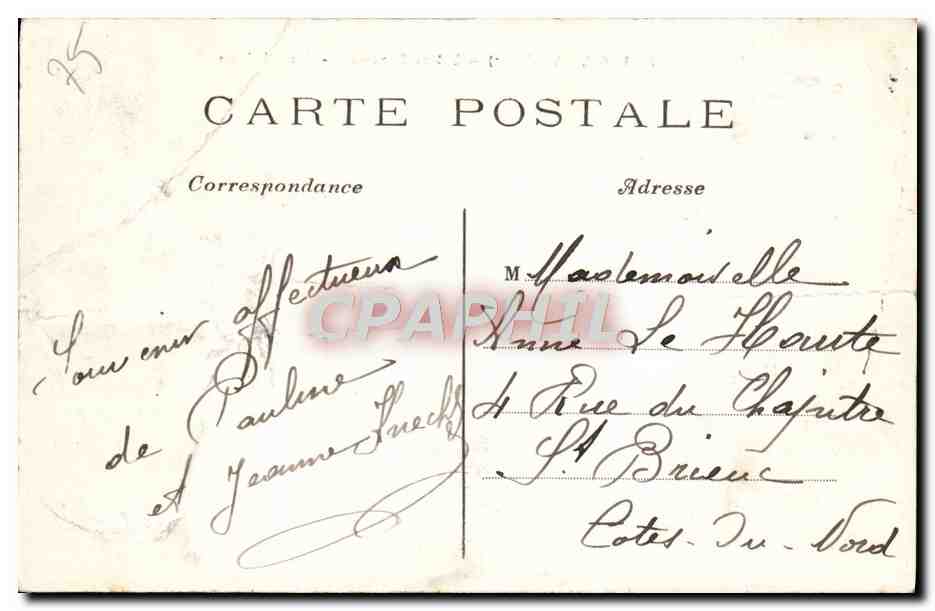 75
CARTE POSTALE
Correspondance
Adresse
Souvenir affectueux
de Pauline
et Jeanne
M Mademoiselle
Anne Le Haute
4 Rue du Chapitre
St Brieuc
Cotes-Du-Nord
CPAPHIL